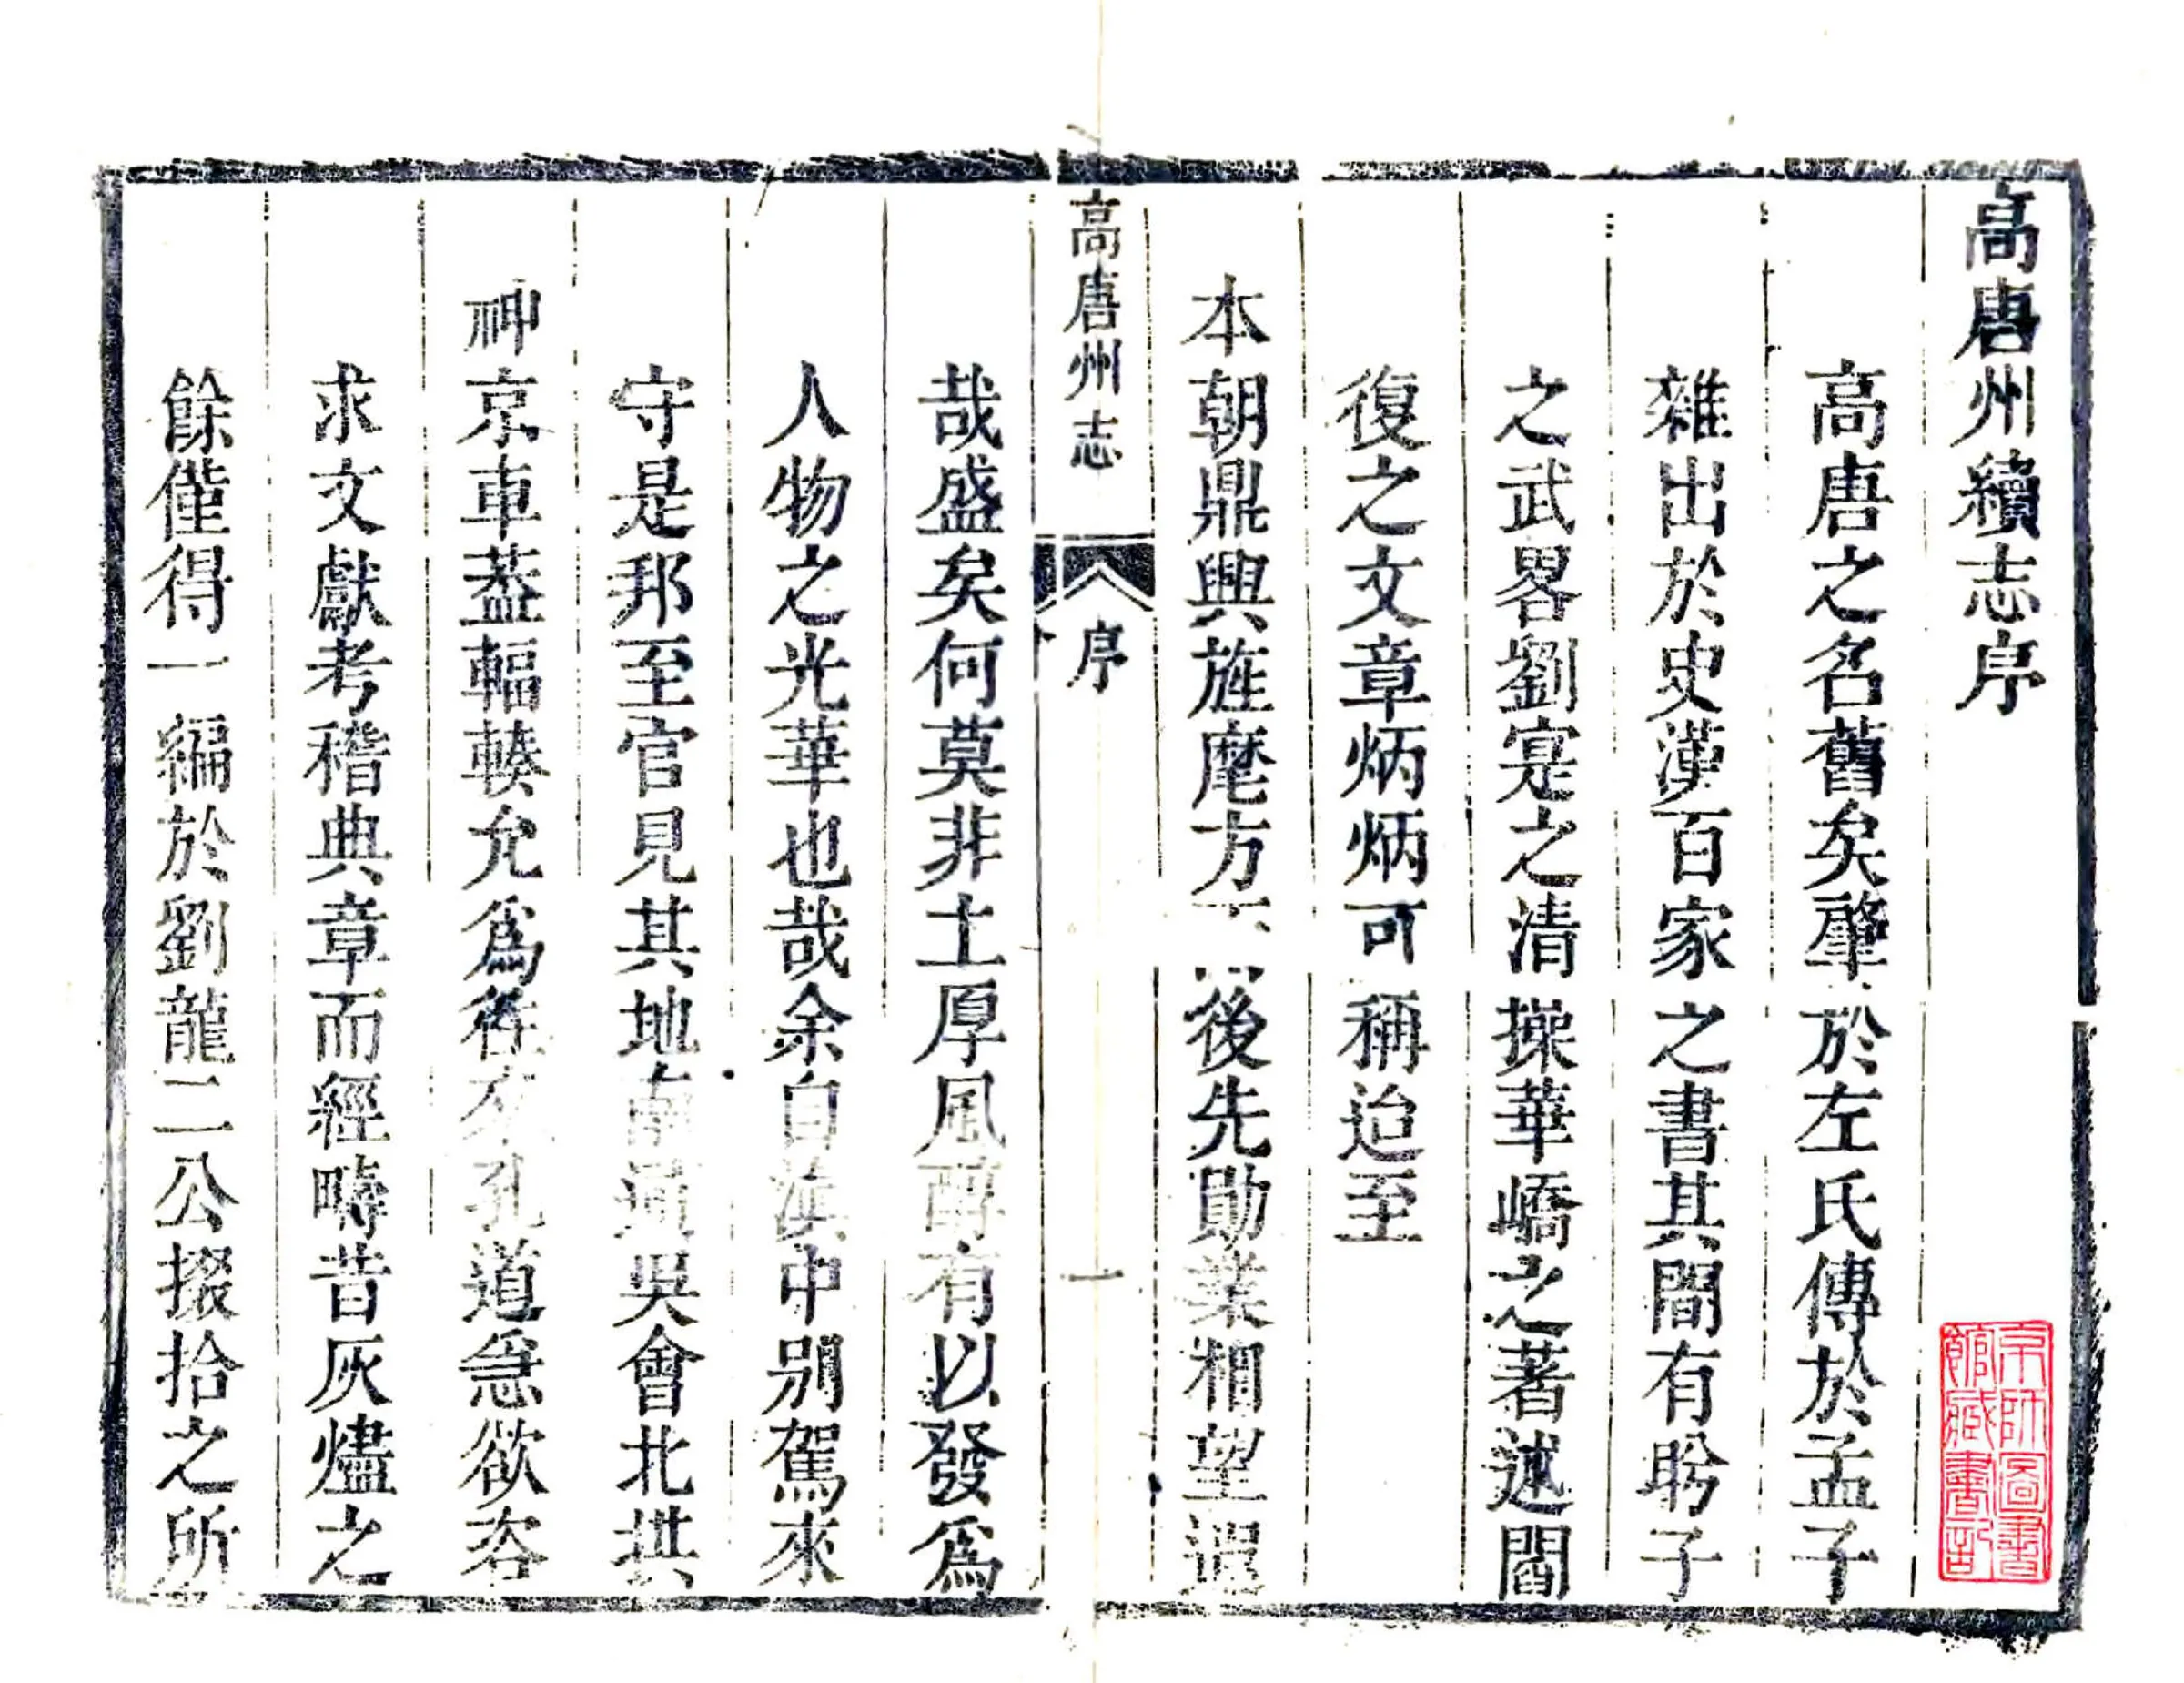 高唐州續志序
高唐之名舊矣肇於左氏傳於孟子
雜出於史漢百家之書其間有盼子
之武畧劉寔之清操華嶠之著述閻
復之文章炳炳可稱迨至
本朝鼎興旌麾方後先勛業相望
哉盛矣何莫非土厚風醇有以發爲
人物之光華也哉余自滇中別駕來
守是邦至官見其地南通吳會北拱
神京車葢輻輳允爲徃來孔道急欲咨
求文獻考稽典章而經疇昔灰燼之
餘僅得一編於劉龍二公掇拾之所
高唐州志
序
一
京師圖書
館藏書記